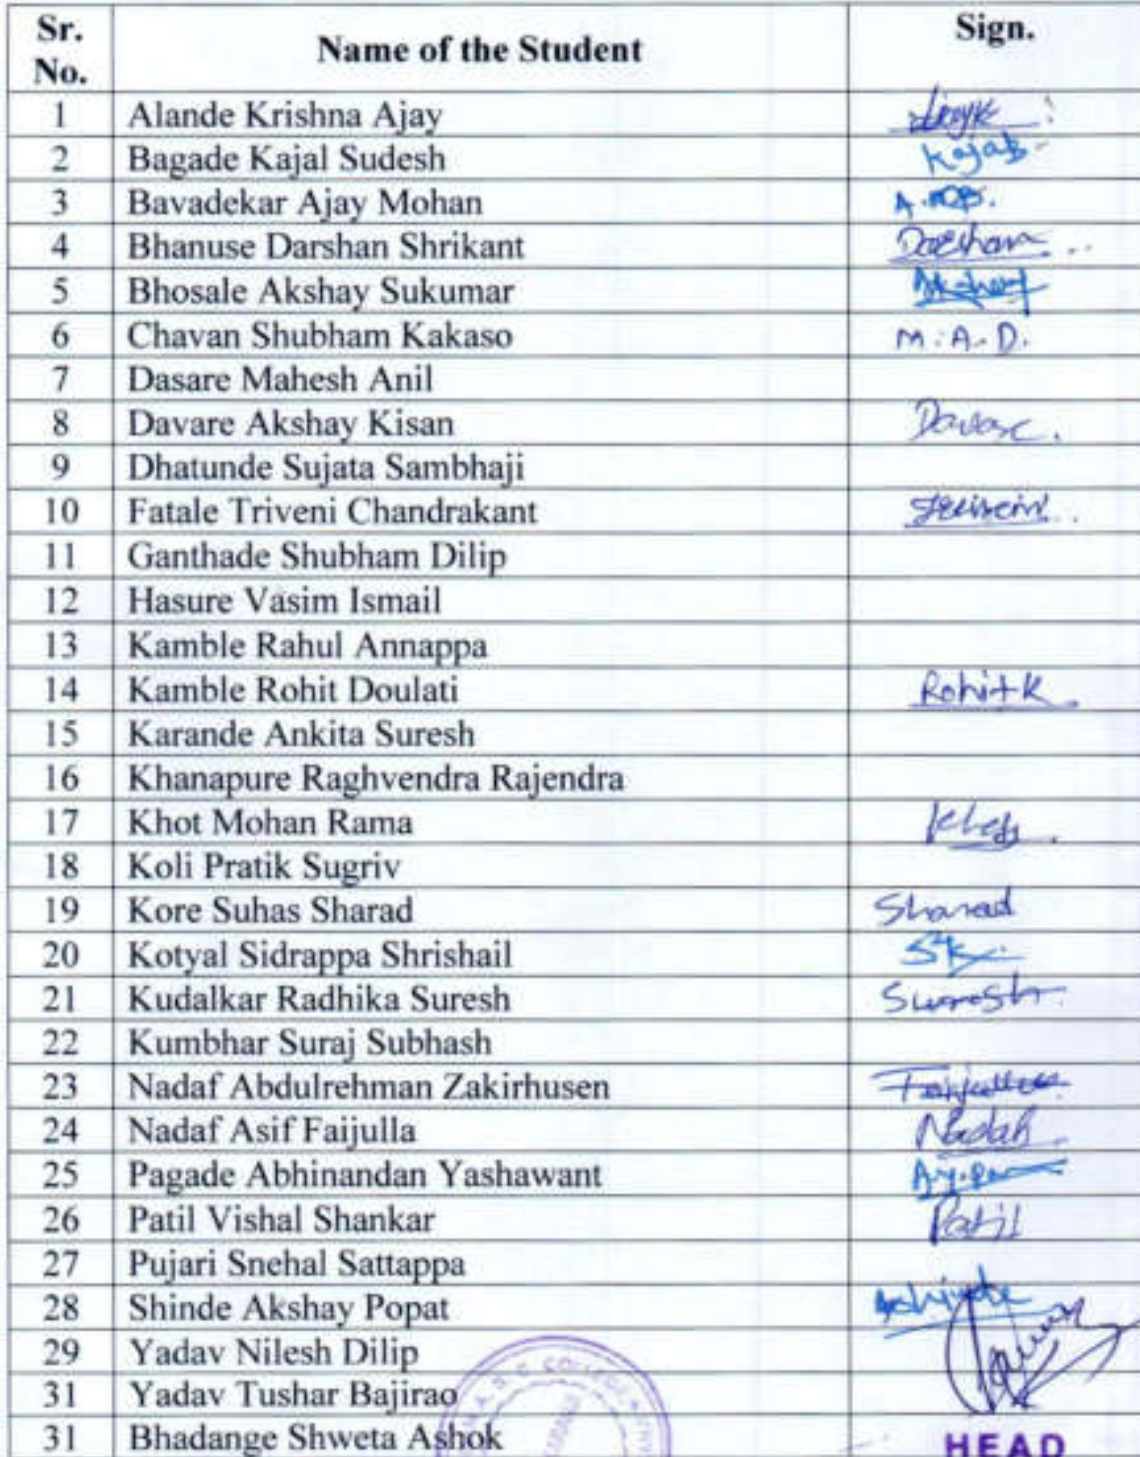 Sr. No. Name of the Student Sign.
1 Alande Krishna Ajay
2 Bagade Kajal Sudesh Kajal
3 Bavadekar Ajay Mohan
4 Bhanuse Darshan Shrikant Darshan
5 Bhosale Akshay Sukumar
6 Chavan Shubham Kakaso M.A.D.
7 Dasare Mahesh Anil
8 Davare Akshay Kisan
9 Dhatunde Sujata Sambhaji
10 Fatale Triveni Chandrakant
11 Ganthade Shubham Dilip
12 Hasure Vasim Ismail
13 Kamble Rahul Annappa
14 Kamble Rohit Doulati Rohit K
15 Karande Ankita Suresh
16 Khanapure Raghvendra Rajendra
17 Khot Mohan Rama
18 Koli Pratik Sugriv
19 Kore Suhas Sharad Sharad
20 Kotyal Sidrappa Shrishail
21 Kudalkar Radhika Suresh Suresh
22 Kumbhar Suraj Subhash
23 Nadaf Abdulrehman Zakirhusen
24 Nadaf Asif Faijulla
25 Pagade Abhinandan Yashawant
26 Patil Vishal Shankar Patil
27 Pujari Snehal Sattappa
28 Shinde Akshay Popat
29 Yadav Nilesh Dilip
31 Yadav Tushar Bajirao
31 Bhadange Shweta Ashok
HEAD